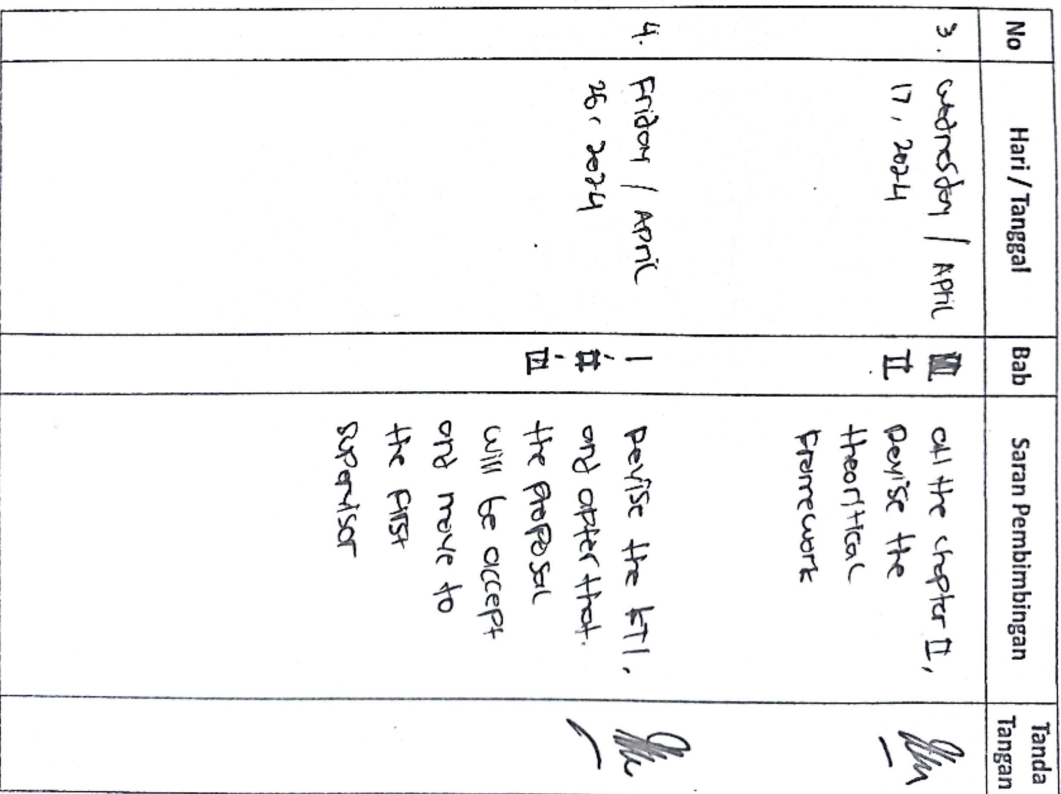 No
Hari / Tanggal
Bab
Saran Pembimbingan
Tanda
Tangan
3.
Wednesday / April
17, 2024
II
all the chapter II,
Revise the
theoritical
Framework
4.
Friday / April
26, 2024
I
II
III
Revise the KTI,
and after that.
the proposal
will be accept
and move to
the first
supervisor